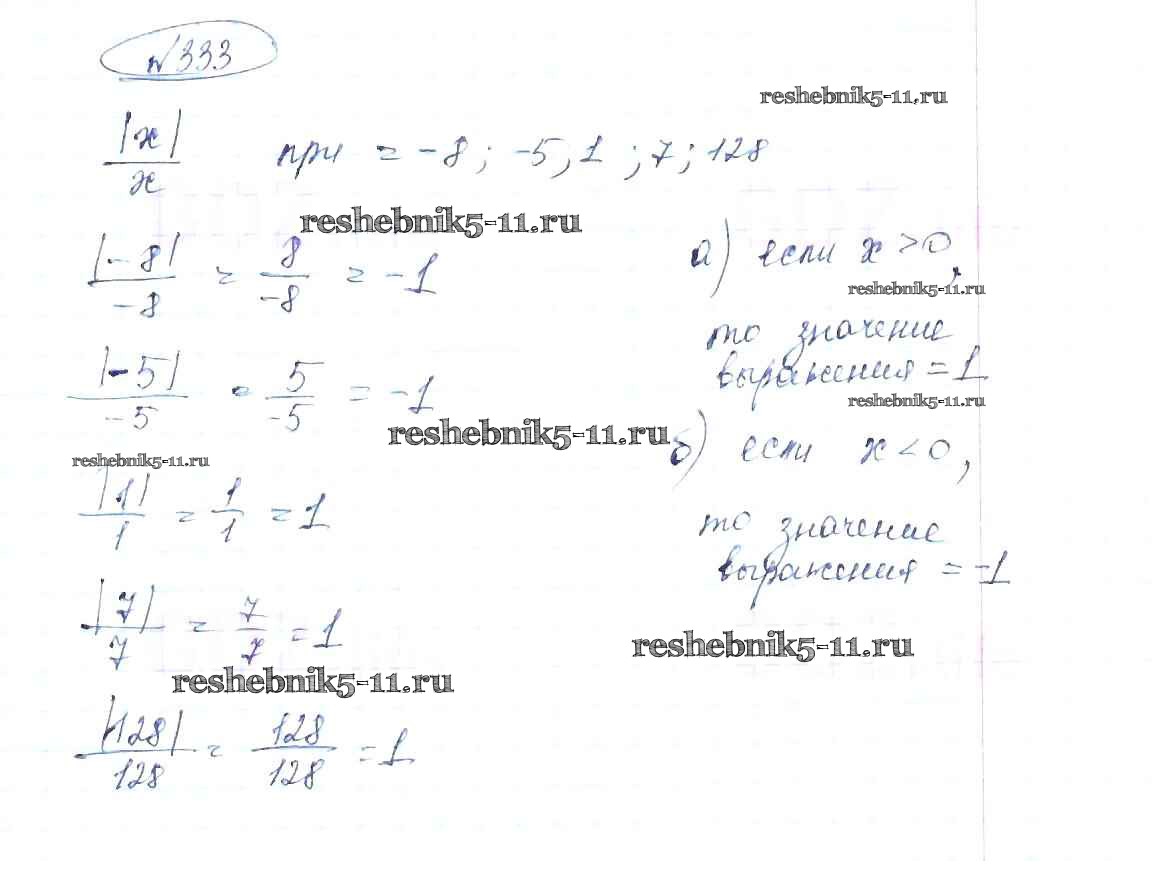 №333
reshebnik5-11.ru
|x|/x при = -8; -5; 1; 7; 128
reshebnik5-11.ru
|-8|/-8 = 8/-8 = -1
|-5|/-5 = 5/-5 = -1
reshebnik5-11.ru
reshebnik5-11.ru
|1|/1 = 1/1 = 1
|7|/7 = 7/7 = 1
reshebnik5-11.ru
|128|/128 = 128/128 = 1
а) если x > 0,
reshebnik5-11.ru
то значение
выражения = 1
reshebnik5-11.ru
б) если x < 0,
то значение
выражения = -1
reshebnik5-11.ru